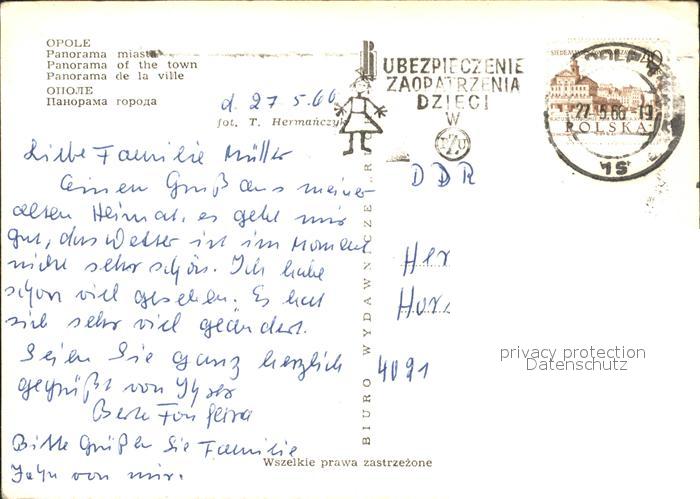 OPOLE
Panorama miasta
Panorama of the town
Panorama de la ville
ОПОЛЕ
Панорама города
d. 27.5.66
fot. T. Hermańczyk
UBEZPIECZENIE
ZAOPATRZENIA
DZIECI
W
PZU
40
27.5.66-19
POLSKA
1S
DDR
Liebe Familie Müller
einen Gruß aus meiner
alten Heimat, es geht mir
gut, das Wetter ist im Moment
nicht sehr schön. Ich habe
schon viel gesehen. Es hat
sich sehr viel geändert.
Seien Sie ganz herzlich
gegrüßt von
Bitte Grüßen Sie Familie
Jahn von mir.
Her
Hor
4091
BIURO WYDAWNICZE RUCH
privacy protection
Datenschutz
Wszelkie prawa zastrzeżone